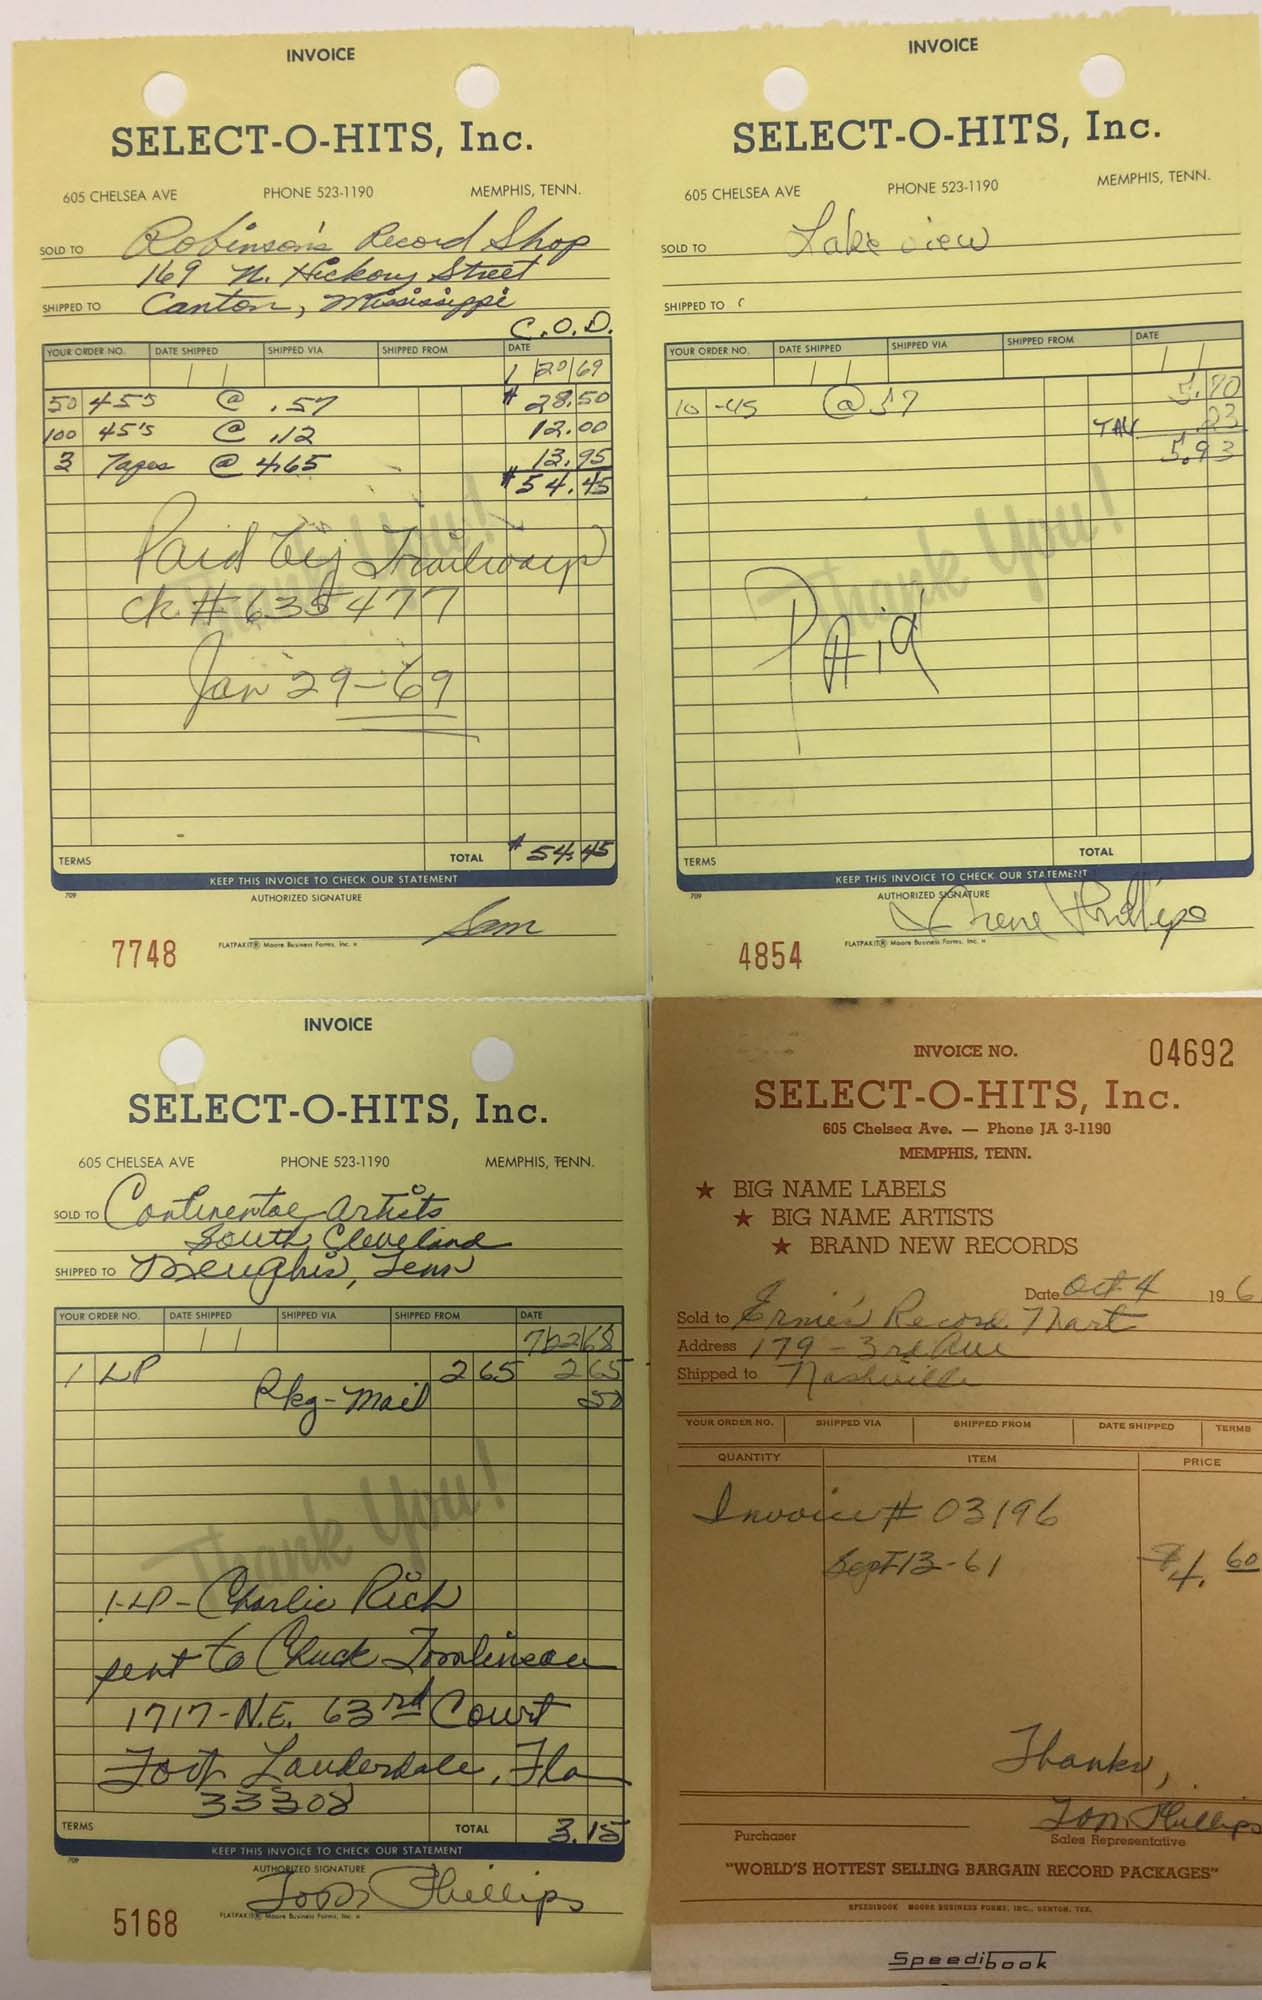 INVOICE
SELECT-O-HITS, Inc.
605 CHELSEA AVE PHONE 523-1190 MEMPHIS, TENN.
SOLD TO Robinson's Record Shop
169 N. Hickory Street
SHIPPED TO Canton, Mississippi
C.O.D.
YOUR ORDER NO. DATE SHIPPED SHIPPED VIA SHIPPED FROM DATE
1 20 69
50 45's @ .57 $28.50
100 45's @ .12 12.00
3 Tapes @ 4.65 13.95
$54.45
Thank You!
Paid by Trailways
ck # 635477
Jan 29-69
TERMS TOTAL $54.45
KEEP THIS INVOICE TO CHECK OUR STATEMENT
709 AUTHORIZED SIGNATURE
Sam
7748 FLATPAKIT® Moore Business Forms, Inc.
INVOICE
SELECT-O-HITS, Inc.
605 CHELSEA AVE PHONE 523-1190 MEMPHIS, TENN.
SOLD TO Lake view
SHIPPED TO
YOUR ORDER NO. DATE SHIPPED SHIPPED VIA SHIPPED FROM DATE
10 -45 @ 57 5.70
TAX 23
5.93
Thank You!
PAid
TERMS TOTAL
KEEP THIS INVOICE TO CHECK OUR STATEMENT
709 AUTHORIZED SIGNATURE
Irene Phillips
4854 FLATPAKIT® Moore Business Forms, Inc.
INVOICE
SELECT-O-HITS, Inc.
605 CHELSEA AVE PHONE 523-1190 MEMPHIS, TENN.
SOLD TO Continental Artists
South Cleveland
SHIPPED TO Memphis, Tenn
YOUR ORDER NO. DATE SHIPPED SHIPPED VIA SHIPPED FROM DATE
7 22 68
1 LP 2 65 2 65
Pkg-Mail 50
Thank You!
1-LP-Charlie Rich
sent to Chuck Tomlinson
1717-N.E. 63rd Court
Fort Lauderdale, Fla
33308
TERMS TOTAL 3.15
KEEP THIS INVOICE TO CHECK OUR STATEMENT
709 AUTHORIZED SIGNATURE
Phillips
5168 FLATPAKIT® Moore Business Forms, Inc.
INVOICE NO. 04692
SELECT-O-HITS, Inc.
605 Chelsea Ave. — Phone JA 3-1190
MEMPHIS, TENN.
★ BIG NAME LABELS
★ BIG NAME ARTISTS
★ BRAND NEW RECORDS
Date Oct 4 196
Sold to Ernie's Record Mart
Address 179 - 3rd Ave
Shipped to Nashville
YOUR ORDER NO. SHIPPED VIA SHIPPED FROM DATE SHIPPED TERMS
QUANTITY ITEM PRICE
Invoice # 03196
Sept 13-61 $4.60
Thanks,
Tom Phillips
Purchaser Sales Representative
"WORLD'S HOTTEST SELLING BARGAIN RECORD PACKAGES"
SPEEDIBOOK MOORE BUSINESS FORMS, INC., DENTON, TEX.
Speedibook